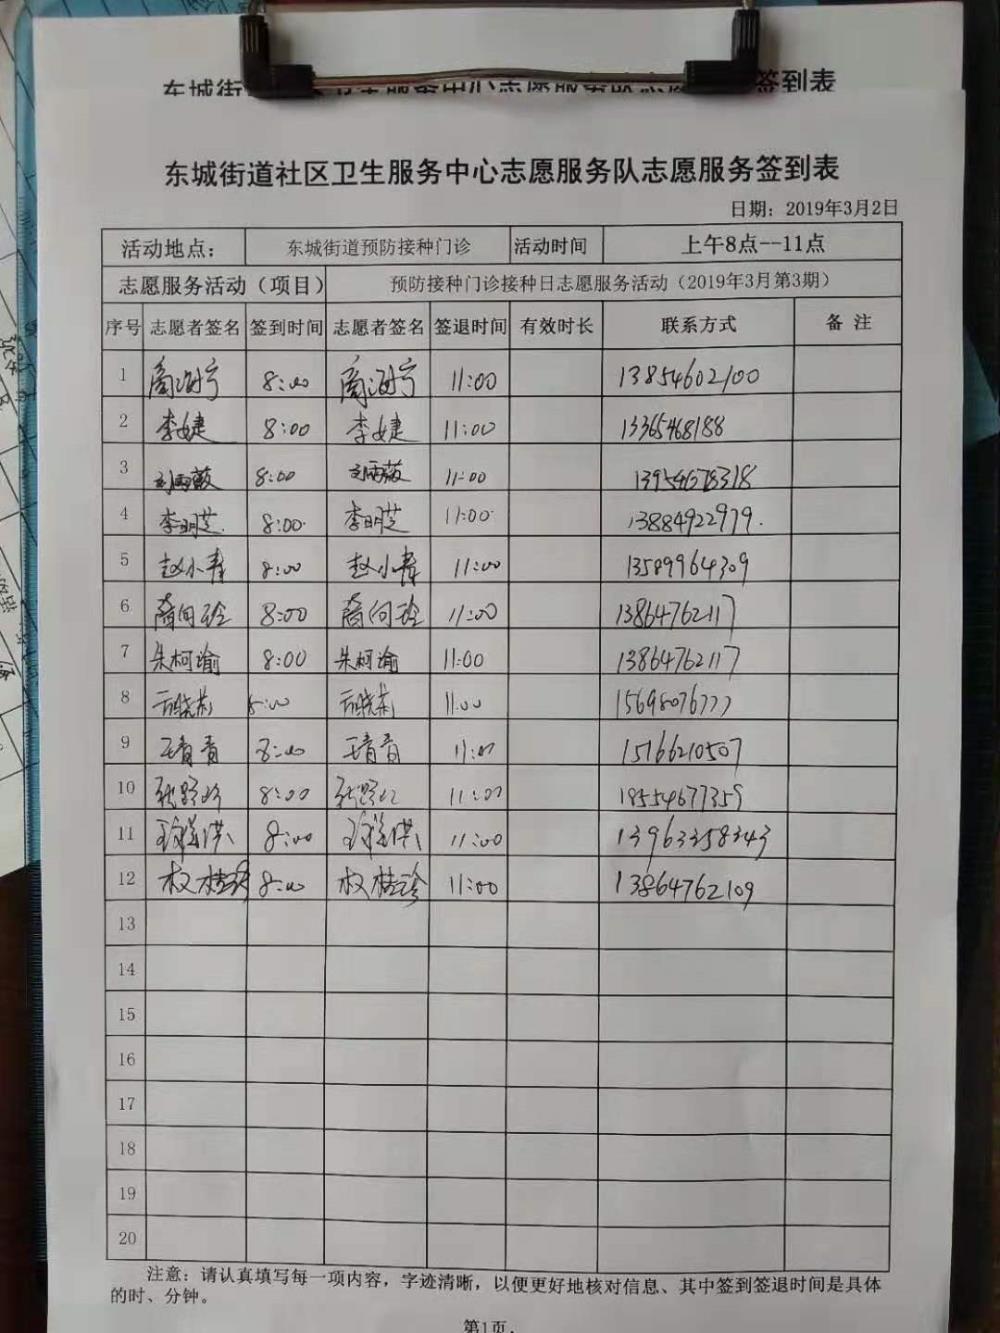 东城街道社区卫生服务中心志愿服务队志愿服务签到表
日期：2019年3月2日
活动地点： 东城街道预防接种门诊 活动时间 上午8点--11点
志愿服务活动（项目） 预防接种门诊接种日志愿服务活动（2019年3月第3期）
序号 志愿者签名 签到时间 志愿者签名 签退时间 有效时长 联系方式 备 注
1 8:00 11:00 13854602100
2 李婕 8:00 李婕 11:00 13365468188
3 8:00 11:00 13954678318
4 李明芝 8:00 李明芝 11:00 13884922979
5 赵小青 8:00 赵小青 11:00 13589964309
6 8:00 11:00 13864762117
7 朱柯瑜 8:00 朱柯瑜 11:00 13864762117
8 8:00 11:00 15698076777
9 王青青 8:00 王青青 11:00 15166210507
10 8:00 11:00 18554677359
11 8:00 11:00 13963358343
12 权桂珍 8:00 权桂珍 11:00 13864762109
13
14
15
16
17
18
19
20
注意：请认真填写每一项内容，字迹清晰，以便更好地核对信息、其中签到签退时间是具体
的时、分钟。
第1页.